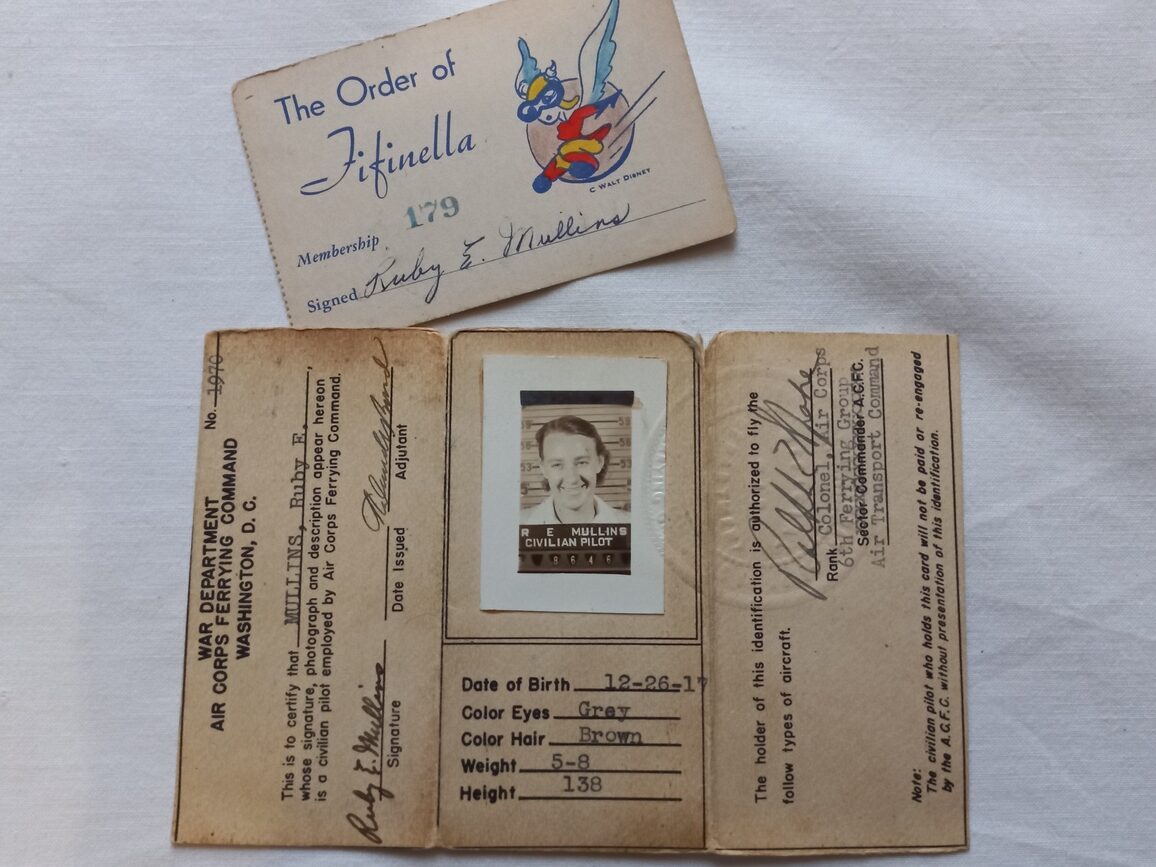 The Order of
Fifinella
Membership 179
Signed Ruby E. Mullins
© WALT DISNEY
No. 1970
WAR DEPARTMENT
AIR CORPS FERRYING COMMAND
WASHINGTON, D. C.
This is to certify that MULLINS, Ruby E.,
whose signature, photograph and description appear hereon
is a civilian pilot employed by Air Corps Ferrying Command.
Ruby E. Mullins
Signature
Date Issued Adjutant
59 59
53 53
R E MULLINS
CIVILIAN PILOT
8 6 4 6
Date of Birth 12-26-17
Color Eyes Grey
Color Hair Brown
Weight 5-8
Height 138
The holder of this identification is authorized to fly the
follow types of aircraft.
Rank Colonel, Air Corps
6th Ferrying Group
Sector Commander A.C.F.C.
Air Transport Command
Note:
The civilian pilot who holds this card will not be paid or re-engaged
by the A.C.F.C. without presentation of this identification.